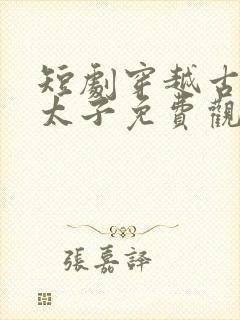 短劇穿越古
太子免費觀
張嘉譯